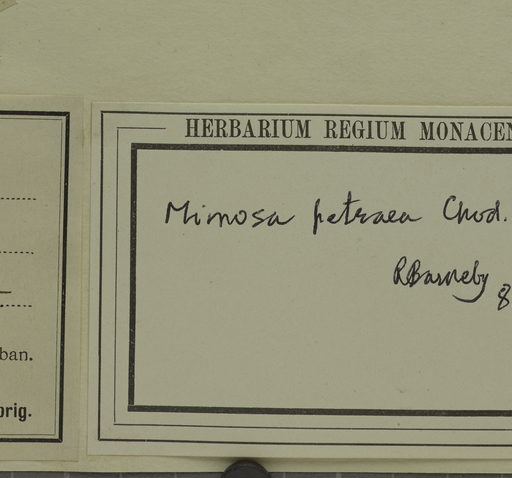 HERBARIUM REGIUM MONACEN
Mimosa petraea Chod.
RBarneby
8
ban.
orig.